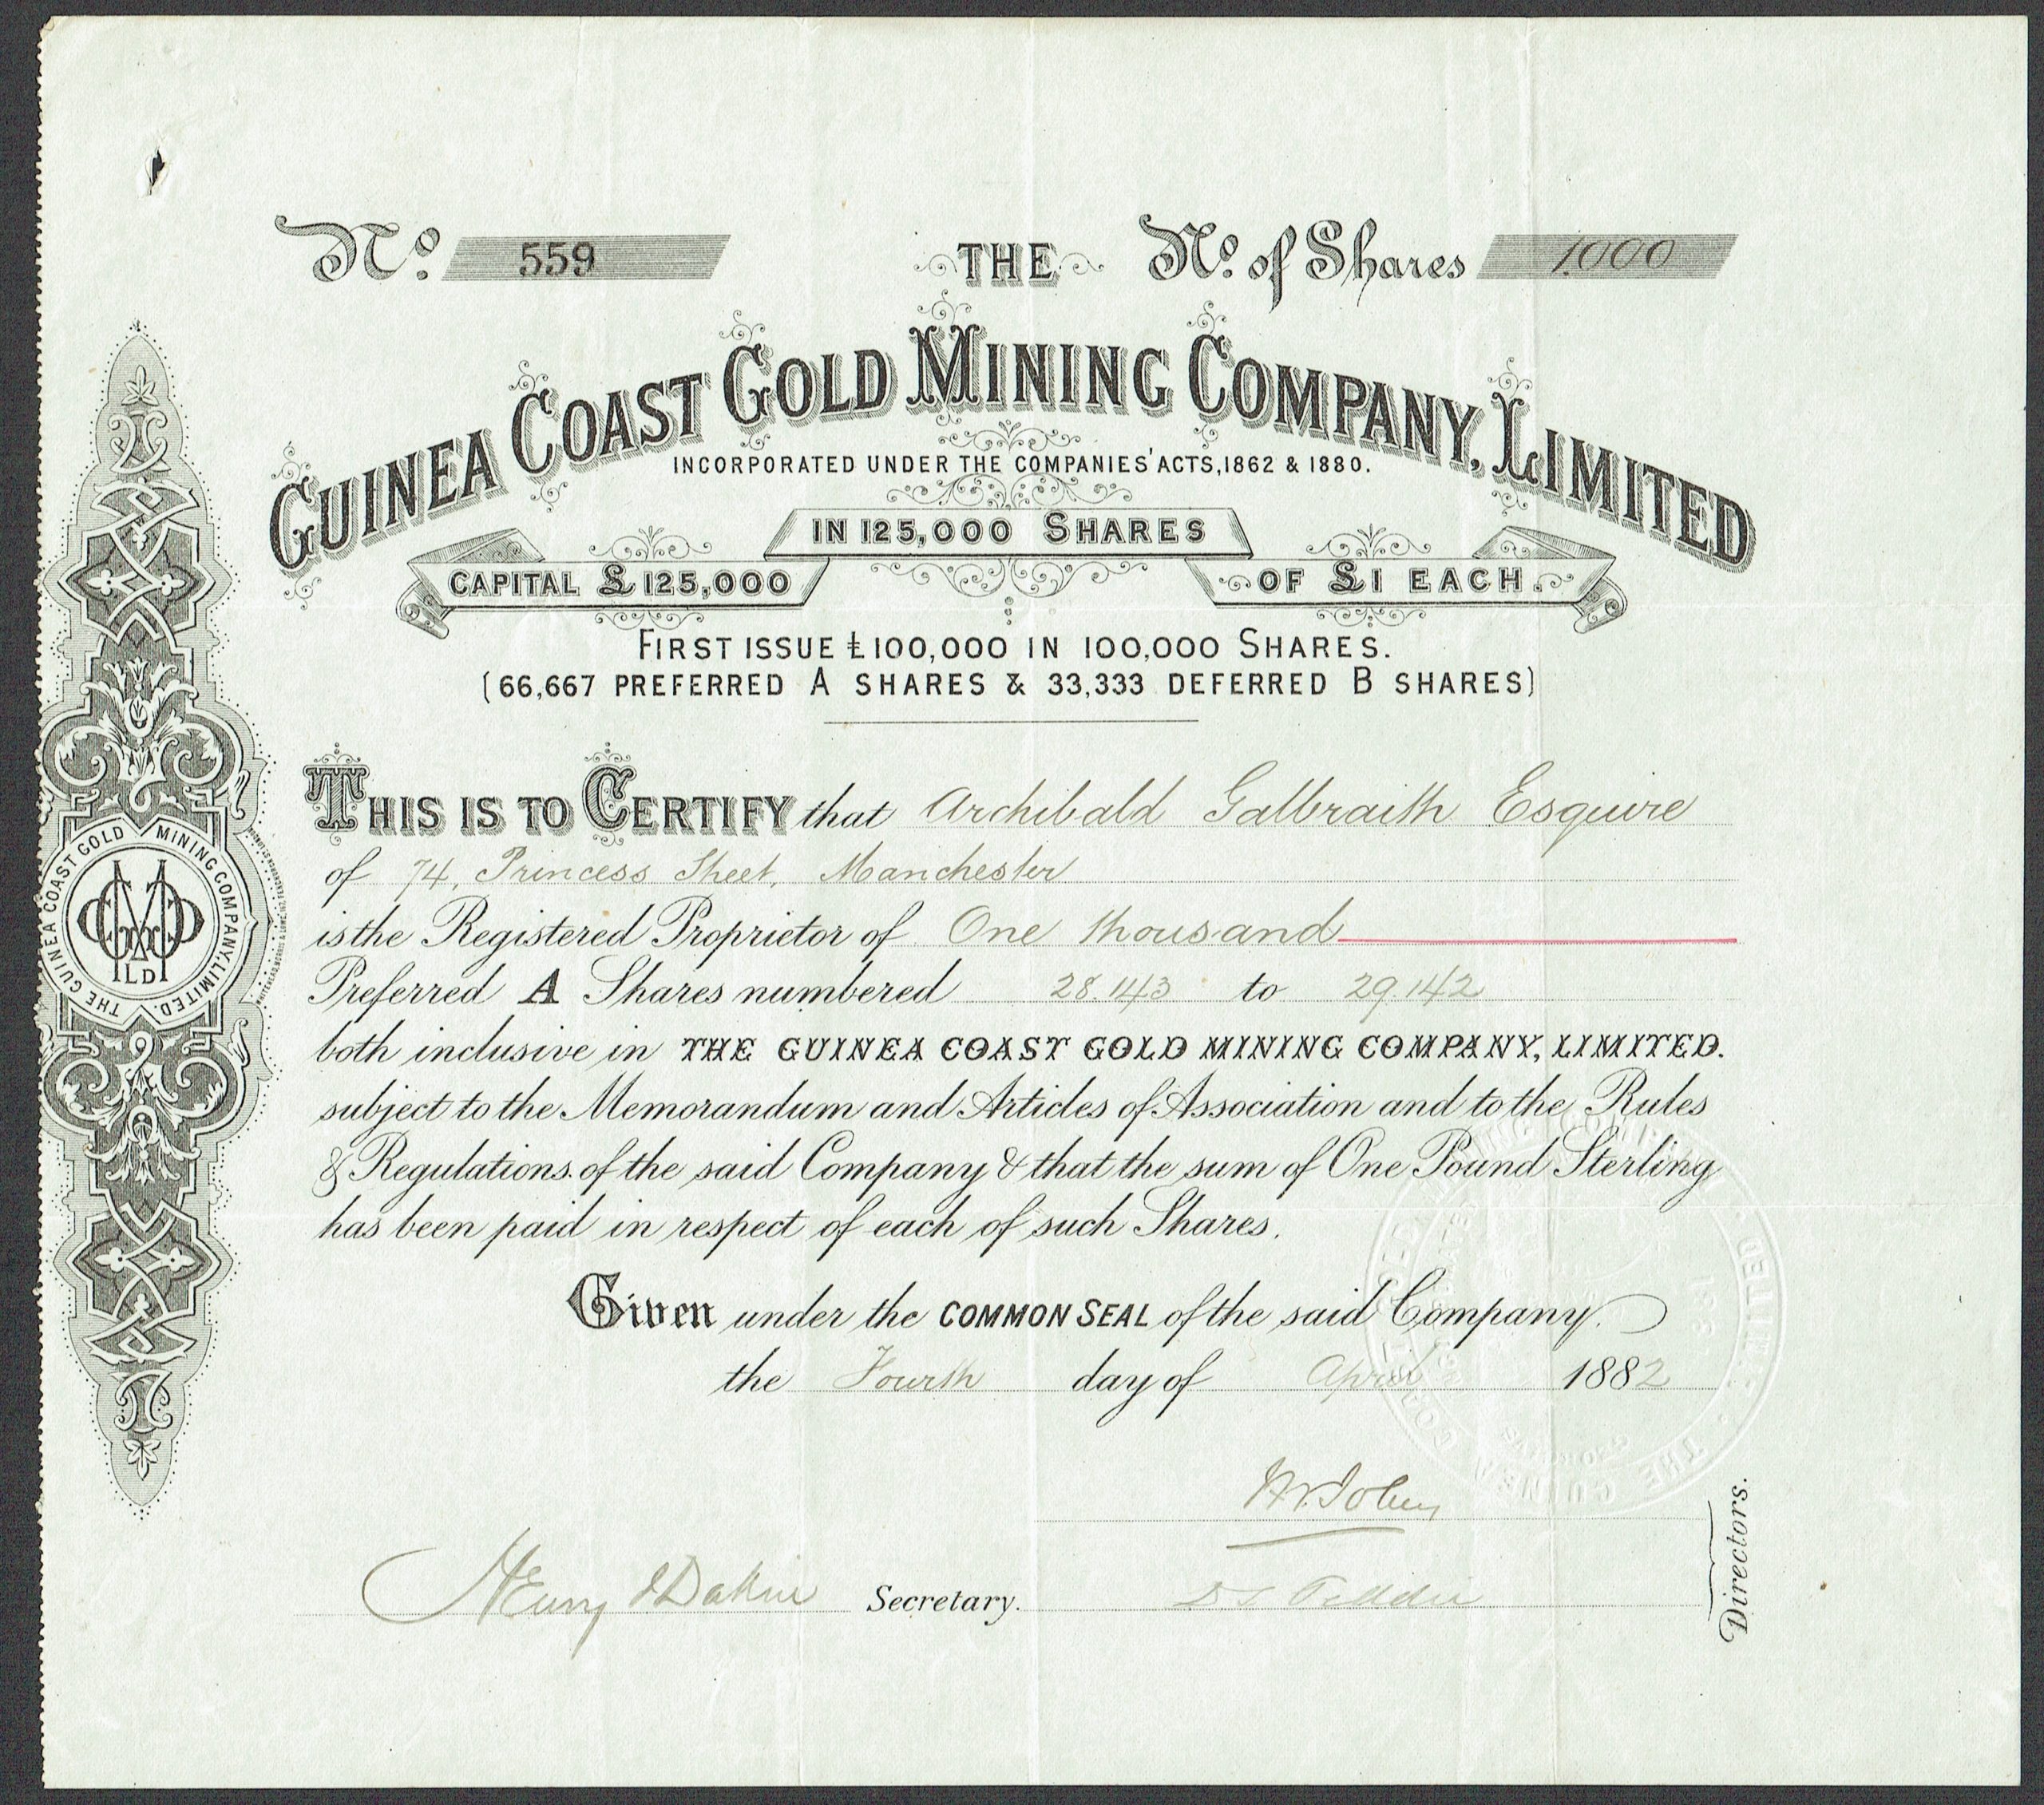 No. 559 THE No. of Shares 1.000
GUINEA COAST GOLD MINING COMPANY, LIMITED
INCORPORATED UNDER THE COMPANIES' ACTS, 1862 & 1880.
IN 125,000 SHARES
CAPITAL £125,000 OF £1 EACH.
FIRST ISSUE £100,000 IN 100,000 SHARES.
(66,667 PREFERRED A SHARES & 33,333 DEFERRED B SHARES)
THIS IS TO CERTIFY that Archibald Galbraith Esquire
of 74, Princess Street, Manchester
is the Registered Proprietor of One thousand
Preferred A Shares numbered 28.143 to 29.142
both inclusive in THE GUINEA COAST GOLD MINING COMPANY, LIMITED.
subject to the Memorandum and Articles of Association and to the Rules
& Regulations of the said Company & that the sum of One Pound Sterling
has been paid in respect of each of such Shares.
Given under the COMMON SEAL of the said Company.
the Fourth day of April 1882
Henry Dakin Secretary.
Directors.
THE GUINEA COAST GOLD MINING COMPANY, LIMITED.
LD